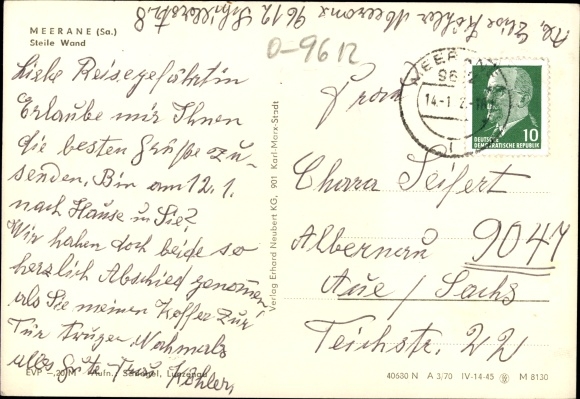 Abs. Elise Köhler Meerane 9612 Schillerstr. 8
MEERANE (Sa.)
Steile Wand
O-9612
Liebe Reisegefährtin
Erlaube mir Ihnen
die besten Grüße zu-
senden, Bin am 12.1.
nach Hause u Sie?
Wir haben doch beide so
herzlich Abschied genommen,
als Sie meinen Koffer zur
Tür trugen Nochmals
alles gute Frau Köhler,
EVP -,20 M Aufn.:
Verlag Erhard Neubert KG, 901 Karl-Marx-Stadt
MEERANE
9612
14-1
10
DEUTSCHE
DEMOKRATISCHE REPUBLIK
Frau
Chara Seifert
Albernau 9047
Aue / Sachs
Teichstr. 22
40630 N A 3/70 IV-14-45 M 8130